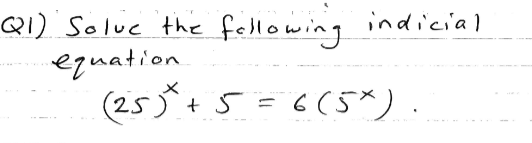 Q1) Solve the following indicial
equation
(25)^x + 5 = 6(5^x).